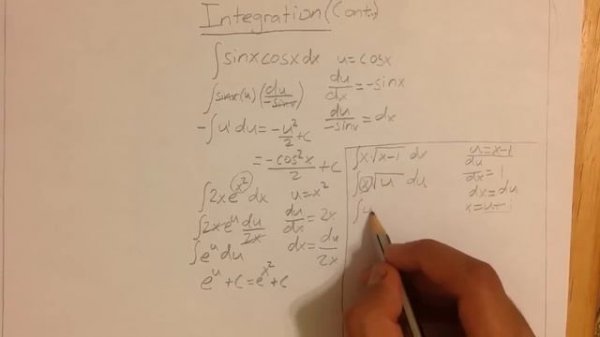 Integration (Cont.)
∫sinx cosx dx   u = cosx
∫sinx(u)(du/-sinx)   du/dx = -sinx
-∫u' du = -u²/2 + c   du/-sinx = dx
= -cos²x/2 + c
∫2xe^x² dx   u = x²
∫2xe^u du/2x   du/dx = 2x
∫e^u du   dx = du/2x
e^u + c = e^x² + c
∫x√x-1 dx   u = x-1
∫x√u du   du/dx = 1
dx = du
∫u   x = u+1